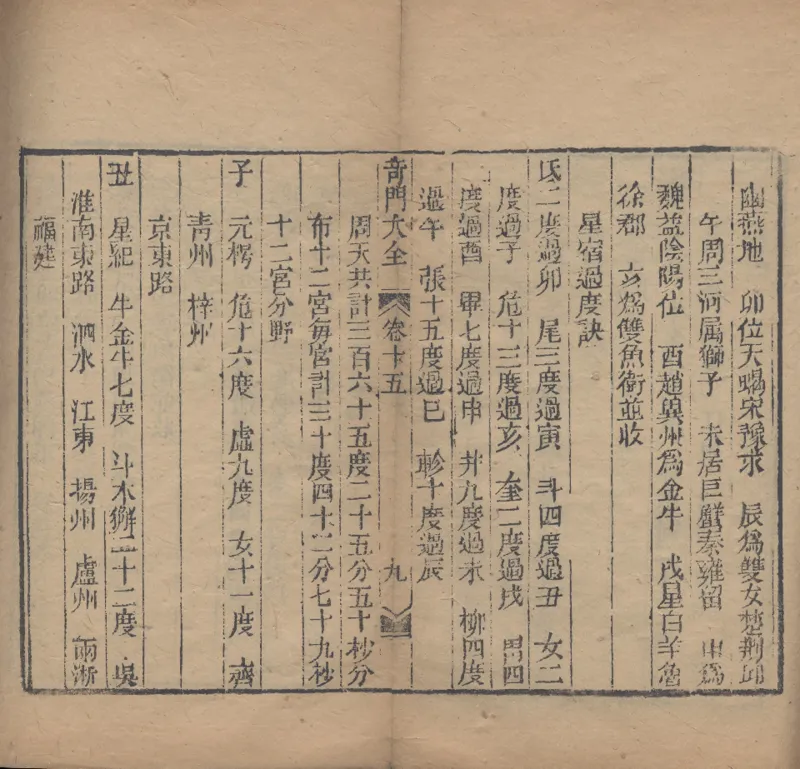 幽燕地　卯位天蝎宋豫求　辰爲雙女楚荆邱
午周三河属獅子　未居巨蠏秦雍留　申爲
魏益陰陽位　酉趙兾州爲金牛　戌星白羊魯
徐郡　亥爲雙魚衛並收
星宿過度訣
氐二度過卯　尾三度過寅　斗四度過丑　女二
度過子　危十三度過亥　奎二度過戌　胃四
度過酉　畢七度過申　井九度過未　柳四度
過午　張十五度過巳　軫十度過辰
奇門大全　卷十五　九
周天共計三百六十五度二十五分五十秒分
布十二宮每宮計三十度四十二分七十九秒
十二宮分野
子　元枵　危十六度　虛九度　女十一度　齊
青州　梓州
京東路
丑　星紀　牛金牛七度　斗木獬二十二度　吳
淮南東路　泗水　江東　揚州　盧州　兩淅
福建